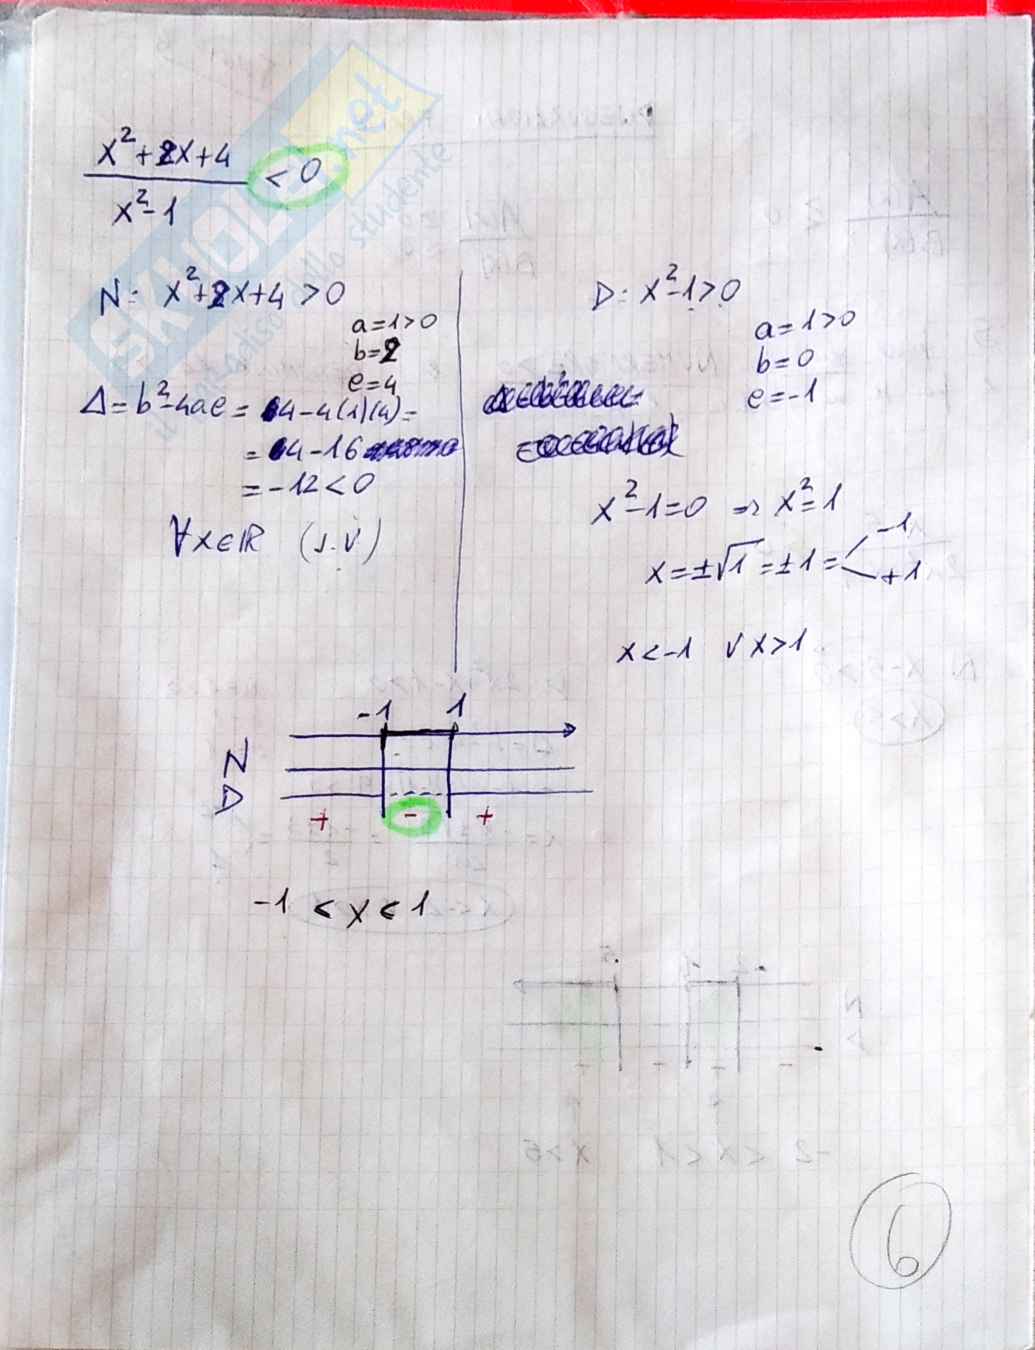 x²+2x+4
x²-1
< 0
N: x²+2x+4 > 0
a=1>0
b=2
c=4
Δ=b²-4ac= 4-4(1)(4)=
= 4-16
= -12 < 0
∀x∈ℝ (s.v)
D: x²-1>0
a=1>0
b=0
c=-1
x²-1=0 ⇒ x²=1
x=±√1=±1= -1
+1
x<-1 ∨ x>1
-1 1
N
D
+ - +
-1 < x < 1
6
SKUOLA.net